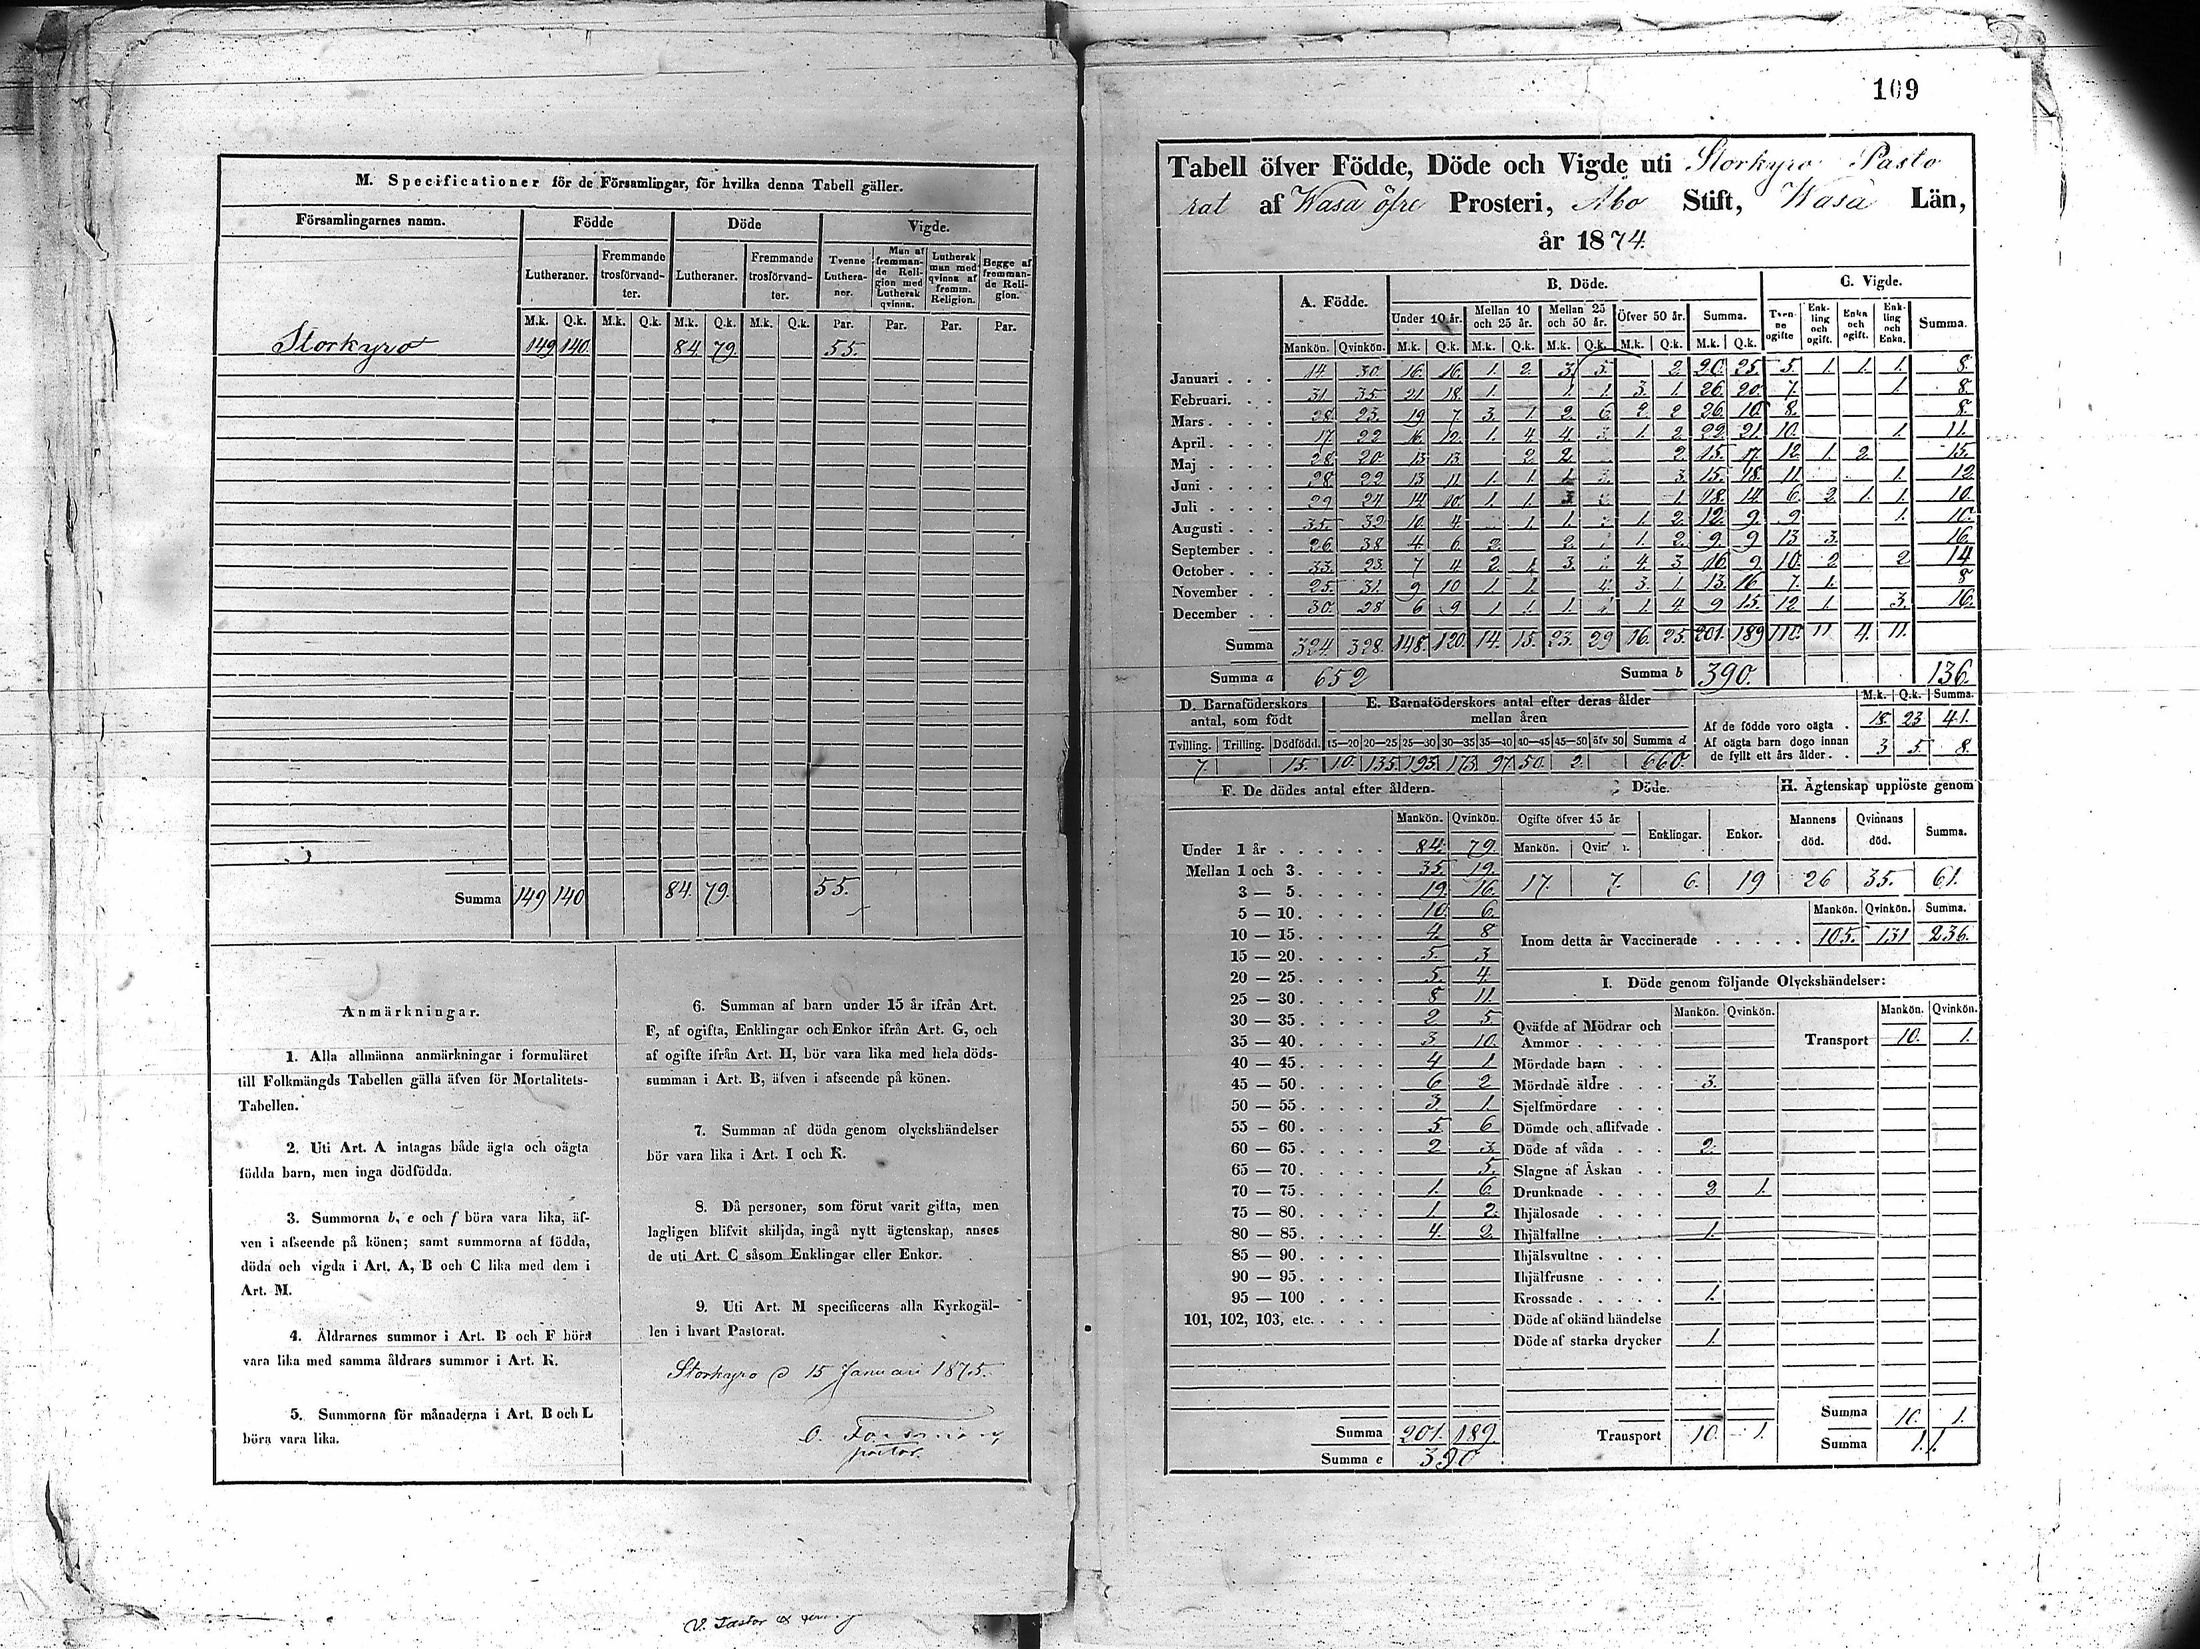 M. Specificationer för de Församlingar, för hvilka denna Tabell gäller.
Församlingarnes namn. Födde Döde Vigde.
Lutheraner. Fremmande trosförvandter. Lutheraner. Fremmande trosförvandter. Tvenne Lutheraner. Man af fremmande Religion med Luthersk qvinna. Luthersk man med qvinna af fremm. Religion. Begge af fremmande Religion.
M.k. Q.k. M.k. Q.k. M.k. Q.k. M.k. Q.k. Par. Par. Par. Par.
Storkyro 149 140. 84. 79. 55.
Summa 149 140 84. 79. 55.
Anmärkningar.
1. Alla allmänna anmärkningar i formuläret
till Folkmängds Tabellen gälla äfven för Mortalitets-
Tabellen.
2. Uti Art. A intagas både ägta och oägta
födda barn, men inga dödfödda.
3. Summorna b, e och f böra vara lika, äf-
ven i afseende på könen; samt summorna af födda,
döda och vigda i Art. A, B och C lika med dem i
Art. M.
4. Åldrarnes summor i Art. B och F böra
vara lika med samma åldrars summor i Art. K.
5. Summorna för månaderna i Art. B och L
böra vara lika.
6. Summan af barn under 15 år ifrån Art.
F, af ogifta, Enklingar och Enkor ifrån Art. G, och
af ogifte ifrån Art. H, bör vara lika med hela döds-
summan i Art. B, äfven i afseende på könen.
7. Summan af döda genom olyckshändelser
bör vara lika i Art. I och K.
8. Då personer, som förut varit gifta, men
lagligen blifvit skiljda, ingå nytt ägtenskap, anses
de uti Art. C såsom Enklingar eller Enkor.
9. Uti Art. M specificeras alla Kyrkogäl-
len i hvart Pastorat.
Storkyro d 15 Januari 1875.
O. Forsman
pastor.
109
Tabell öfver Födde, Döde och Vigde uti Storkyro Pasto
rat af Wasa öfre Prosteri, Åbo Stift, Wasa Län,
år 1874.
A. Födde. B. Döde. C. Vigde.
Under 10 år. Mellan 10 och 25 år. Mellan 25 och 50 år. Öfver 50 år. Summa. Tvenne ogifte Enkling och ogift. Enka och ogift. Enkling och Enka. Summa.
Mankön. Qvinkön. M.k. Q.k. M.k. Q.k. M.k. Q.k. M.k. Q.k. M.k. Q.k.
Januari 14 30 16. 16. 1. 2. 3. 5. 2. 20. 25. 5. 1. 1. 1. 8.
Februari. 31. 35. 21 18. 1. 1. 1. 3. 1. 26. 20. 7. 1. 8.
Mars 28. 23. 19 7. 3. 1. 2. 6. 2. 2 26. 10. 8. 8.
April 17. 22 16. 12. 1. 4 4. 1. 2. 22. 21. 10. 1. 11.
Maj 28. 20 13 13. 2 2. 2. 15. 17. 12. 1. 2. 15.
Juni 28. 22 13 11 1. 1. 1 3. 15. 18. 11. 1. 12.
Juli 29 24 14. 10. 1. 1. 3 1. 18. 14. 6. 2. 1. 1. 10.
Augusti 35. 32 10. 4. 1 1. 1. 2. 12. 9. 9 1. 10.
September 26. 38 4. 6 2. 2. 1. 2. 9. 9 13 3. 16.
October 33. 23. 7 4. 2. 1. 3. 4. 3 16. 9. 10. 2 2 14
November 25. 31. 9 10 1. 1. 4. 3. 1 13. 16 7. 1. 8
December 30. 28 6 9 1 1. 1. 1. 4. 9 15. 12. 1. 3. 16.
Summa 324. 328. 148. 120. 14. 15. 23. 29 16. 25. 201. 189 110. 11 4. 11.
Summa a 652 Summa b 390. 136.
D. Barnaföderskors antal, som födt
E. Barnaföderskors antal efter deras ålder mellan åren
Tvilling. Trilling. Dödfödd. 15—20 20—25 25—30 30—35 35—40 40—45 45—50 öfv 50 Summa d
7. 15. 10. 135. 193. 173. 97. 50. 2. 660.
M.k. Q.k. Summa.
Af de födde voro oägta 18. 23 41.
Af oägta barn dogo innan
de fyllt ett års ålder 3 5. 8.
F. De dödes antal efter åldern.
Mankön. Qvinkön.
Under 1 år 84. 79.
Mellan 1 och 3. 35. 19.
3 — 5. 19. 16.
5 — 10. 10 6.
10 — 15. 4. 8
15 — 20. 5. 3
20 — 25. 5. 4.
25 — 30. 8 11.
30 — 35. 2 5.
35 — 40. 3 10.
40 — 45. 4 1
45 — 50. 6 2
50 — 55. 3. 1.
55 — 60. 5 6
60 — 65. 2 3.
65 — 70. 5.
70 — 75. 1. 6.
75 — 80. 1 2.
80 — 85. 4. 2.
85 — 90.
90 — 95.
95 — 100
101, 102, 103, etc.
Summa 201. 189.
Summa e 390
Döde.
Ogifte öfver 15 år Enklingar. Enkor.
Mankön.
17. 7. 6. 19
H. Ägtenskap upplöste genom
Mannens död. Qvinnans död. Summa.
26 35. 61.
Mankön. Qvinkön. Summa.
Inom detta år Vaccinerade 105. 131 236.
I. Döde genom följande Olyckshändelser:
Mankön. Qvinkön. Mankön. Qvinkön.
Qväfde af Mödrar och
Ammor
Transport 10. 1.
Mördade barn
Mördade äldre 3.
Sjelfmördare
Dömde och aflifvade
Döde af våda 2.
Slagne af Åskan
Drunknade 2 1.
Ihjälosade
Ihjälfallne 1.
Ihjälsvultne
Ihjälfrusne
Krossade 1.
Döde af okänd händelse
Döde af starka drycker 1.
Transport 10. 1.
Summa 10. 1.
Summa 11.
V. Pastor